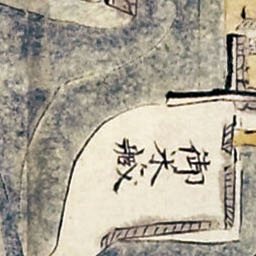 御米蔵